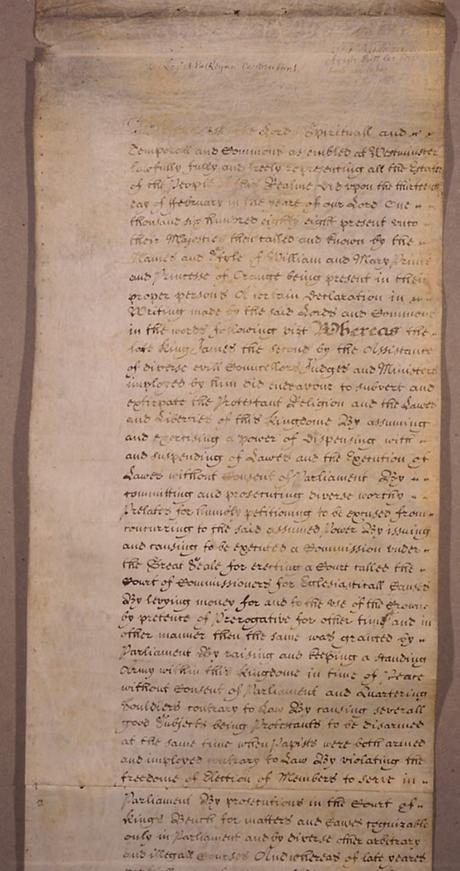 Whereas the Lords Spirituall and
Temporall and Commons assembled at Westminster
lawfully fully and freely representing all the Estates
of the People of this Realme did upon the thirteenth
day of February in the yeare of our Lord One
thousand six hundred eighty eight present unto
their Majesties then called and known by the
Names and Style of William and Mary Prince
and Princesse of Orange being present in their
proper persons A certain Declaration in
Writing made by the said Lords and Commons
in the words following vizt Whereas the
late King James the second by the Assistance
of diverse evill Councellors Judges and Ministers
imployed by him did endeavour to subvert and
extirpate the Protestant Religion and the Lawes
and Liberties of this Kingdome By assuming
and exercising a power of dispensing with
and suspending of Lawes and the Execution of
Lawes without Consent of Parliament By
committing and prosecuting diverse worthy
Prelates for humbly petitioning to be excused from
concurring to the said assumed Power By issuing
and causing to be executed a Commission under
the Great Seale for erecting a Court called the
Court of Commissioners for Ecclesiasticall Causes
By levying money for and to the use of the Crowne
by pretence of Prerogative for other time and in
other manner then the same was granted by
Parliament By raising and keeping a standing
Army within this Kingdome in time of Peace
without Consent of Parliament and Quartering
Souldiers contrary to Law By causing severall
good Subjects being Protestants to be disarmed
at the same time when Papists were both armed
and imployed contrary to Law By violating the
freedome of Election of Members to serve in
Parliament By prosecutions in the Court of
Kings Bench for matters and Causes cognizable
only in Parliament and by diverse other arbitrary
and illegall Courses And whereas of late yeares